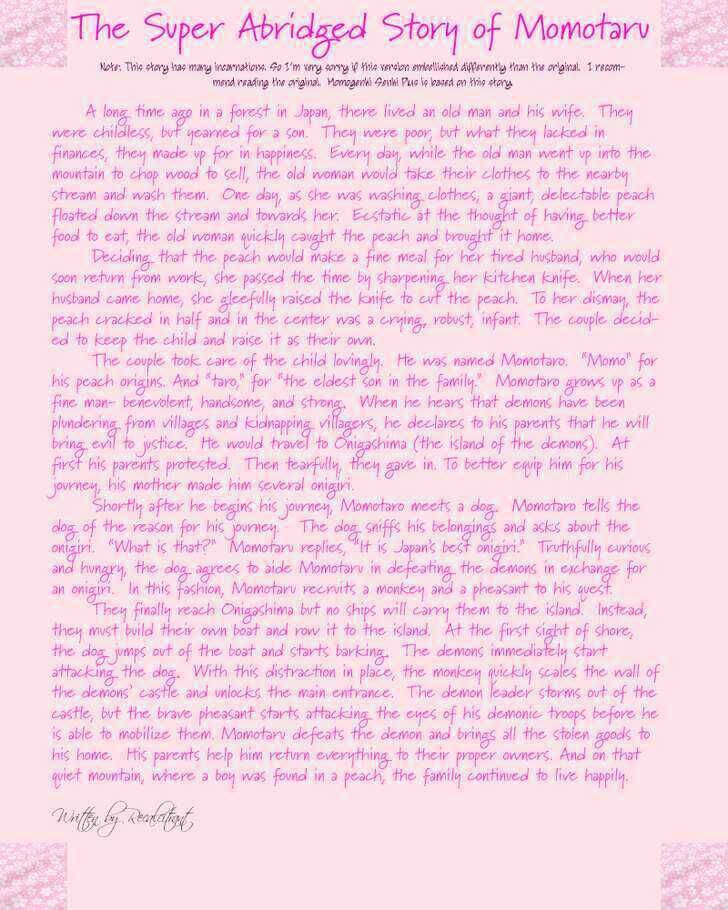 The Super Abridged Story of Momotaru
Note: This story has many incarnations. So I'm very sorry if this version embellished differently than the original. I recom-
mend reading the original. Momogenki Senki Plus is based on this story.
A long time ago in a forest in Japan, there lived an old man and his wife. They
were childless, but yearned for a son. They were poor, but what they lacked in
finances, they made up for in happiness. Every day, while the old man went up into the
mountain to chop wood to sell, the old woman would take their clothes to the nearby
stream and wash them. One day, as she was washing clothes, a giant, delectable peach
floated down the stream and towards her. Ecstatic at the thought of having better
food to eat, the old woman quickly caught the peach and brought it home.
Deciding that the peach would make a fine meal for her tired husband, who would
soon return from work, she passed the time by sharpening her kitchen knife. When her
husband came home, she gleefully raised the knife to cut the peach. To her dismay, the
peach cracked in half and in the center was a crying, robust, infant. The couple decid-
ed to keep the child and raise it as their own.
The couple took care of the child lovingly. He was named Momotaro. "Momo" for
his peach origins. And "taro," for "the eldest son in the family." Momotaro grows up as a
fine man- benevolent, handsome, and strong. When he hears that demons have been
plundering from villages and kidnapping villagers, he declares to his parents that he will
bring evil to justice. He would travel to Onigashima (the island of the demons). At
first his parents protested. Then tearfully, they gave in. To better equip him for his
journey, his mother made him several onigiri.
Shortly after he begins his journey, Momotaro meets a dog. Momotaro tells the
dog of the reason for his journey. The dog sniffs his belongings and asks about the
onigiri. "What is that?" Momotaru replies, "It is Japan's best onigiri." Truthfully curious
and hungry, the dog agrees to aide Momotaru in defeating the demons in exchange for
an onigiri. In this fashion, Momotaru recruits a monkey and a pheasant to his quest.
They finally reach Onigashima but no ships will carry them to the island. Instead,
they must build their own boat and row it to the island. At the first sight of shore,
the dog jumps out of the boat and starts barking. The demons immediately start
attacking the dog. With this distraction in place, the monkey quickly scales the wall of
the demons' castle and unlocks the main entrance. The demon leader storms out of the
castle, but the brave pheasant starts attacking the eyes of his demonic troops before he
is able to mobilize them. Momotaru defeats the demon and brings all the stolen goods to
his home. His parents help him return everything to their proper owners. And on that
quiet mountain, where a boy was found in a peach, the family continued to live happily.
Written by Recalcitrant